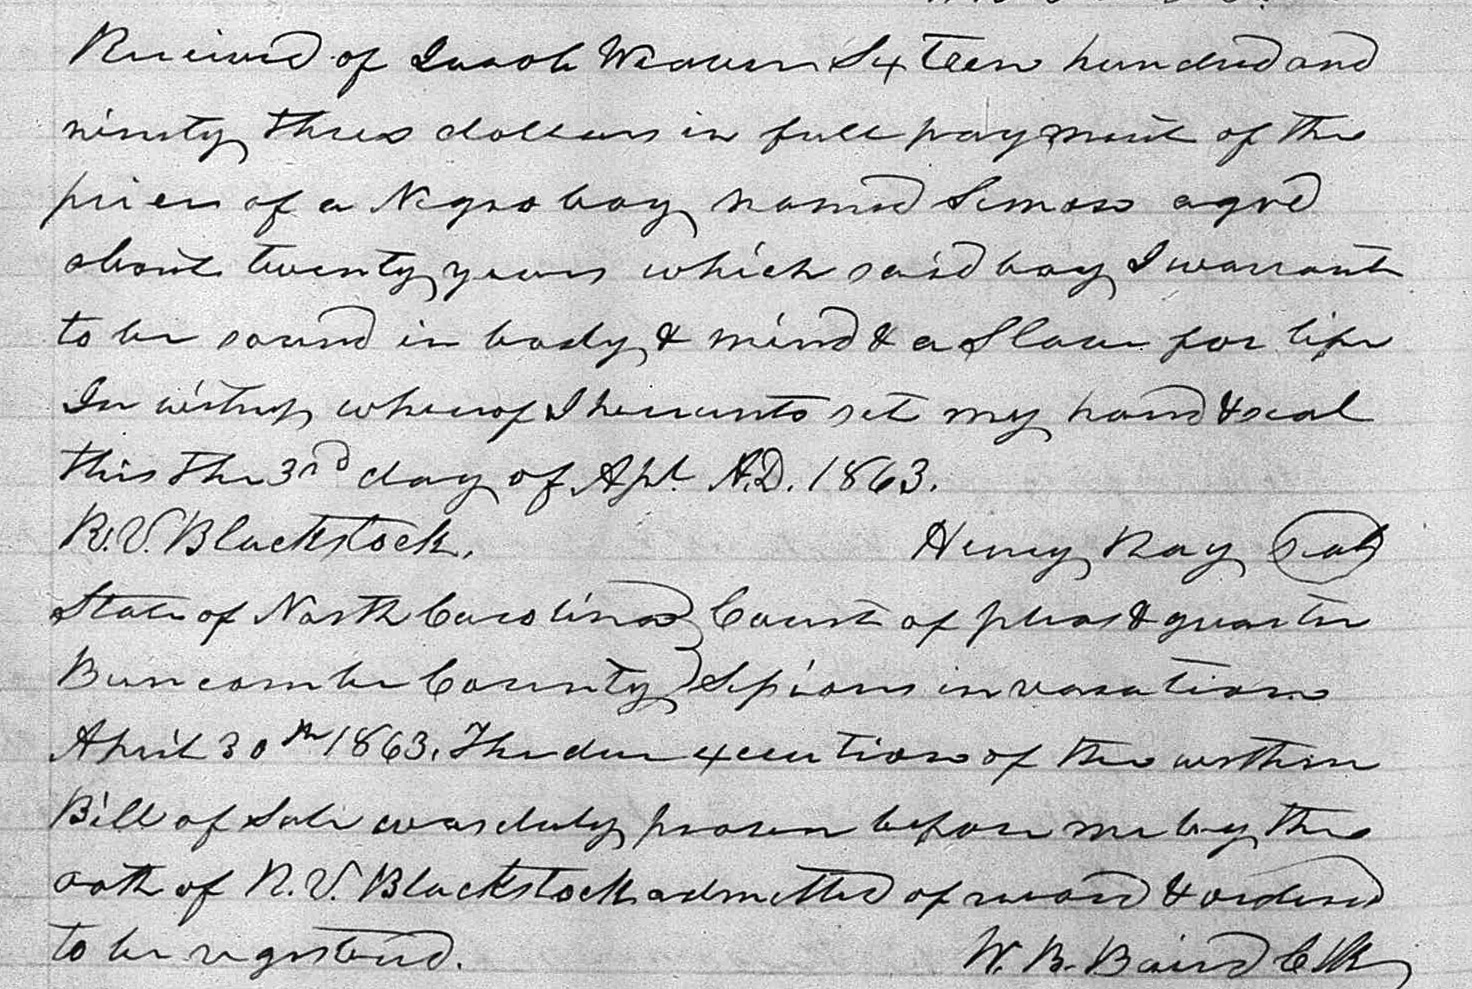 Received of Jacob Weaver Sixteen hundred and
ninety three dollars in full payment of the
price of a Negro boy named Simon aged
about twenty years which said boy I warrant
to be sound in body & mind & a Slave for life
In witness whereof I hereunto set my hand & seal
this the 3rd day of Apl. A.D. 1863.
R.V. Blackstock. Henry Ray Seal
State of North Carolina } Court of pleas & quarter
Buncombe County } Sessions in vacation
April 30th 1863. The due execution of the within
Bill of Sale was duly proven before me by the
oath of R.V. Blackstock admitted of record & ordered
to be registered. W. B. Baird Clk